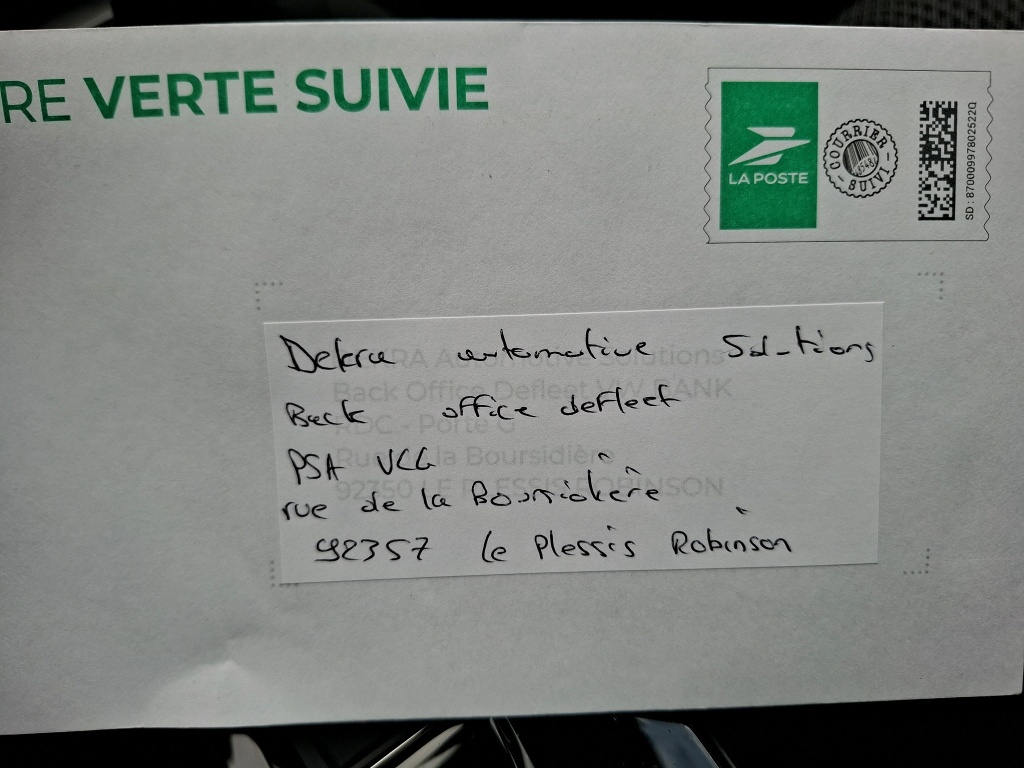 RE VERTE SUIVIE
LA POSTE
COURRIER SUIVI
SD : 87000997802522Q
Dekra automotive Solutions
Back office defleet
PSA VCG
rue de la Boursidière
92357 le Plessis Robinson
DEKRA Automotive Solutions
Back Office Defleet VW BANK
RDC - Porte G
Rue de la Boursidière
92350 LE PLESSIS ROBINSON